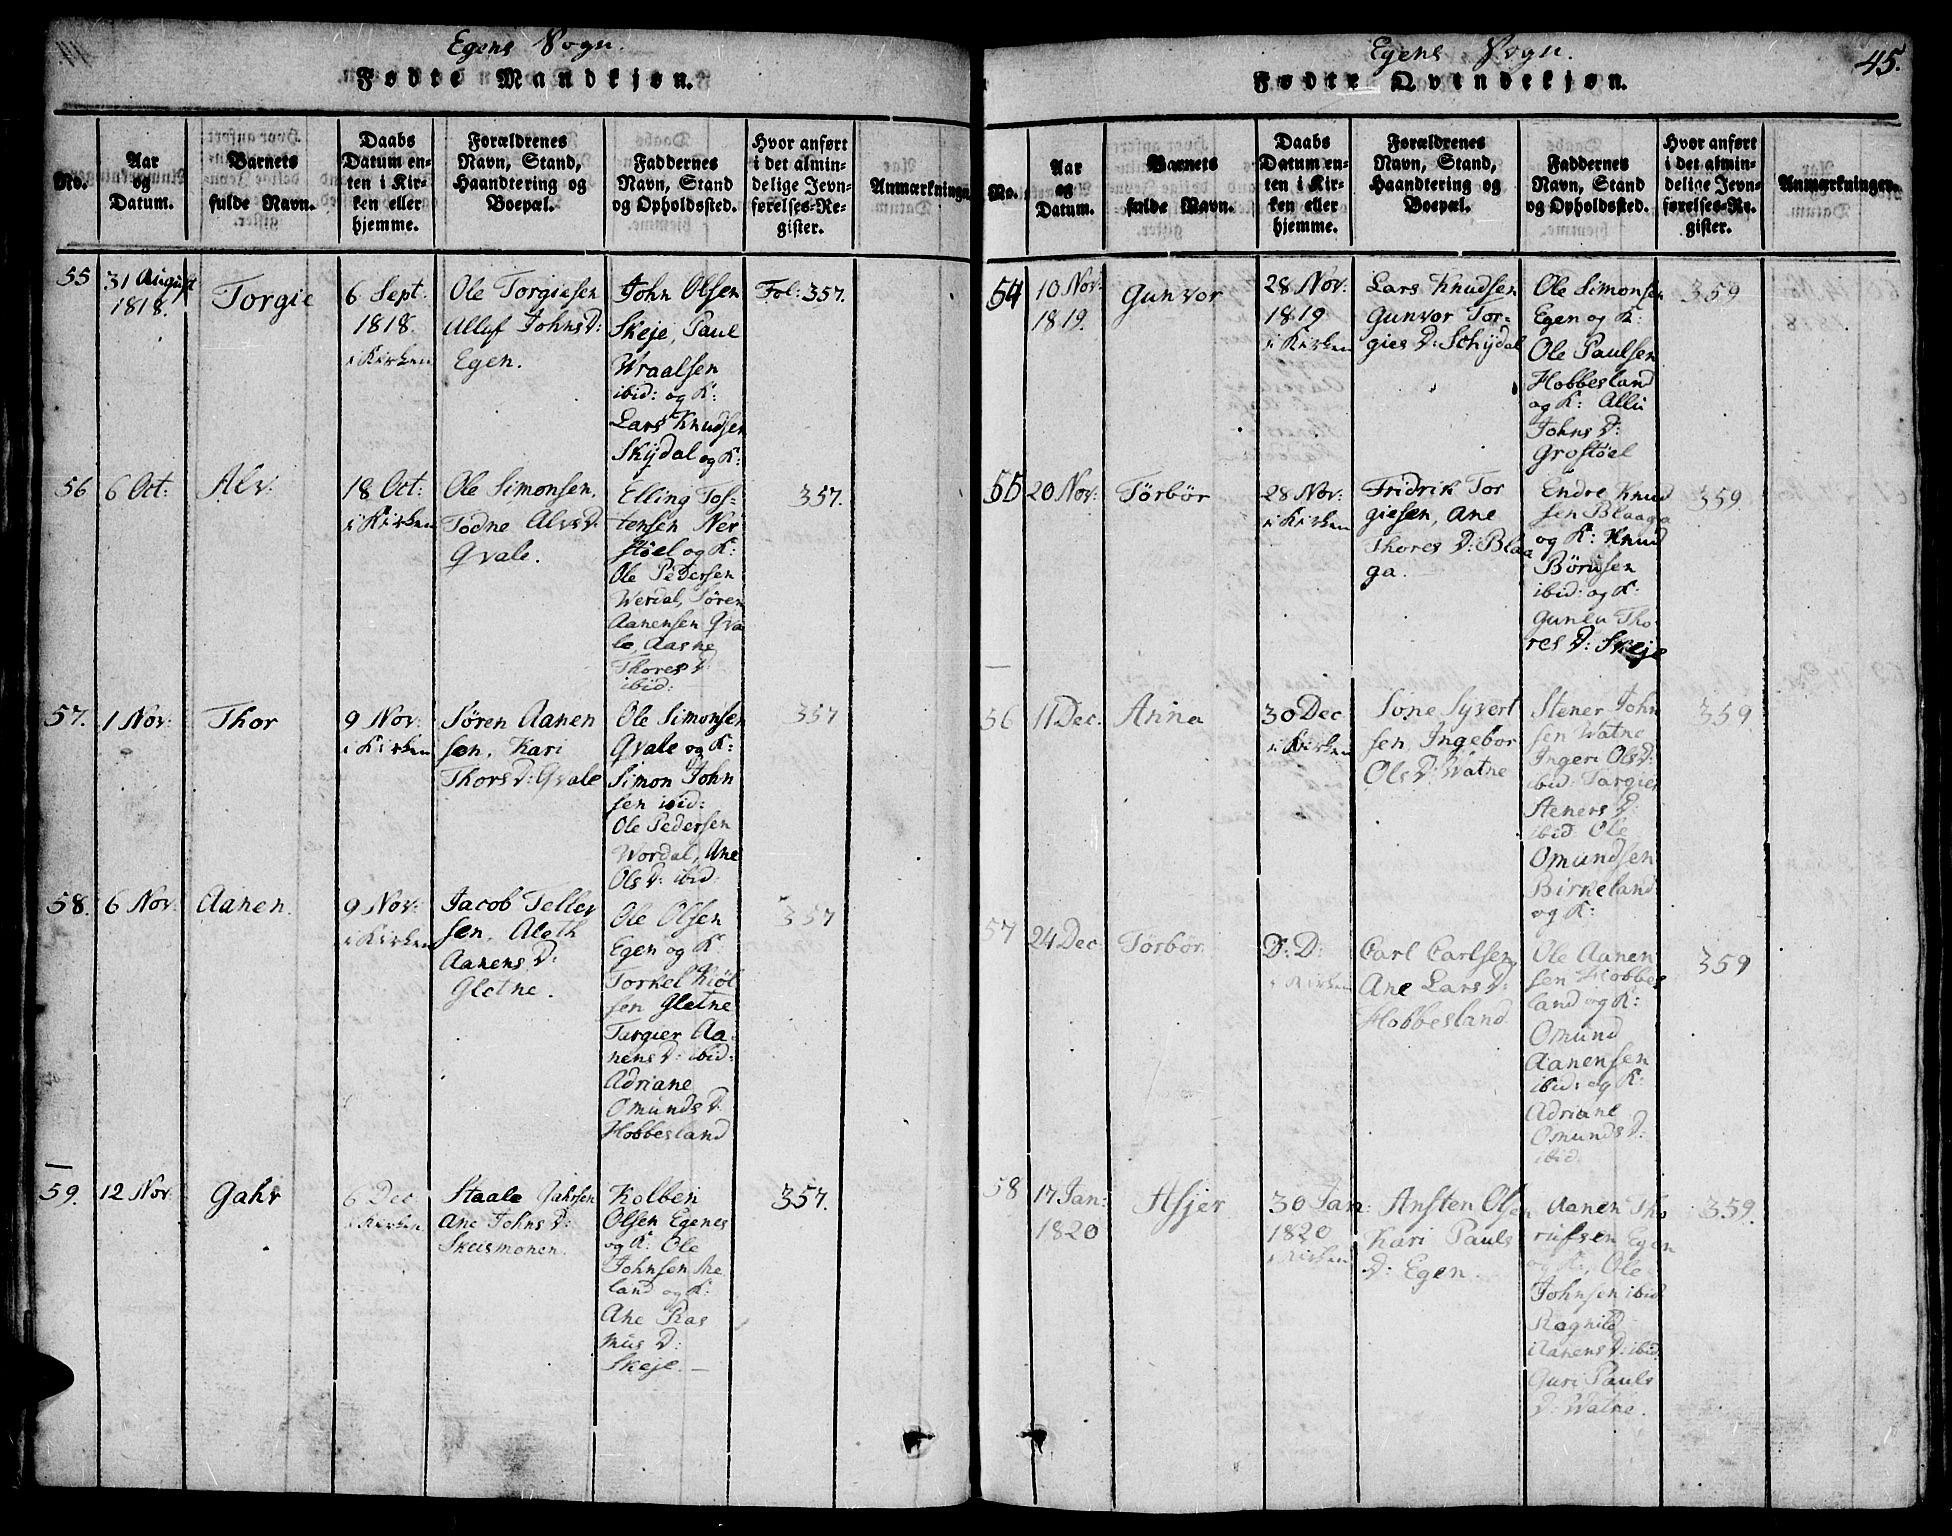 Egens Sogn.
Fødte Mandkjøn.
No.
Aar
og
Datum.
Barnets
fulde Navn.
Daabs
Datum en-
ten i Kir-
ken eller
hjemme.
Forældrenes
Navn, Stand,
Haandtering og
Boepæl.
Faddernes
Navn, Stand
og Opholdssted.
Hvor anført
i det almin-
delige Jevn-
førelses-Re-
gister.
Anmærkninger
55
31 August
1818.
Torgie
6 Sept:
1818.
i Kirken
Ole Torgiesen
Alluf Johns D:
Egen.
John Olsen
Skeje, Paul
Wraalsen
ibid: og K:
Lars Knudsen
Skydal og K:
Fol: 357.
56
6 Oct:
Alv:
18 Oct:
i Kirken
Ole Simonsen,
Todne Alvs D:
Qvale.
Elling Tos-
tensen Ner
støel og K:
Ole Pedersen
Werdal, Søren
Aanensen Qva
le, Aasne
Thores D:
ibid:
357.
57.
1 Nov:
Thor
9 Nov:
i Kirken
Søren Aanen
sen, Kari
Thors D: Qvale
Ole Simonsen
Qvale og K:
Simon John
sen ibid:
Ole Pedersen
Wordal, Ane
Ols D: ibid:
357
58.
6 Nov:
Aanen.
9 Nov:
i Kirken
Jacob Teller
sen, Aleth
Aanens D:
Gletne.
Ole Olsen
Egen og K:
Torkel Kiøl
sen Gletne
Turgier Aa-
nens D: ibid:
Adriane
Omunds D:
Hobbesland
357
59.
12 Nov:
Gahr
6 Dec:
i Kirken
Staale Jahrsen
Ane Johns D:
Skeismonen.
Kolben
Olsen Egenes
og K: Ole
Johnsen He
land og K:
Ane Ras
mus D:
Skeje.
357.
Egens Sogn.
45.
Fødte Qvindekjøn.
No.
Aar
og
Datum.
Barnets
fulde Navn.
Daabs
Datum en-
ten i Kir-
ken eller
hjemme.
Forældrenes
Navn, Stand,
Haandtering og
Boepæl.
Faddernes
Navn, Stand
og Opholdssted.
Hvor anført
i det almin-
delige Jevn-
førelses-Re-
gister.
Anmærkninger.
54
10 Nov:
1819.
Gunvor
28 Nov:
1819
i Kirken
Lars Knudsen
Gunvor Tor-
gies D: Schydal
Ole Simonsen
Egen og K:
Ole Paulsen
Hobbesland
og K: Alli
Johns D:
Grostøel
359
55
20 Nov:
Tørbør
28 Nov:
i Kirken
Fridrik Tor
giesen, Ane
Thores D: Blaa
ga.
Endre Knud
sen Blaaga
og K: Knud
Børusen
ibid: og K:
Gunlu Tho-
res D: Skeje
359
56
11 Dec.
Anna
30 Dec
i Kirken
Sone Syvert
sen, Ingebor
Ols D: Watne
Stener John
sen Watne
Ingeri Ols D:
ibid: Targier
Steners D:
ibid Ole
Omundsen
Birkeland
og K:
359
57
24 Dec:
Tørbør
D: D:
i Kirken
Carl Carlsen,
Ane Lars D:
Hobbesland
Ole Aanen
sen Hobbes
land og K:
Omund
Aanensen
ibid: og K:
Adriane
Omunds D:
ibid.
359
58
17 Jan:
1820
Asjer
30 Jan:
1820
i Kirken
Ansten Olsen
Kari Pauls
D: Egen.
Aanen Tho
rufsen Egen
og K, Ole
Johnsen ibid
Ragnild
Aanens D: ibid.
Guri Pauls
D: Watne.
359.